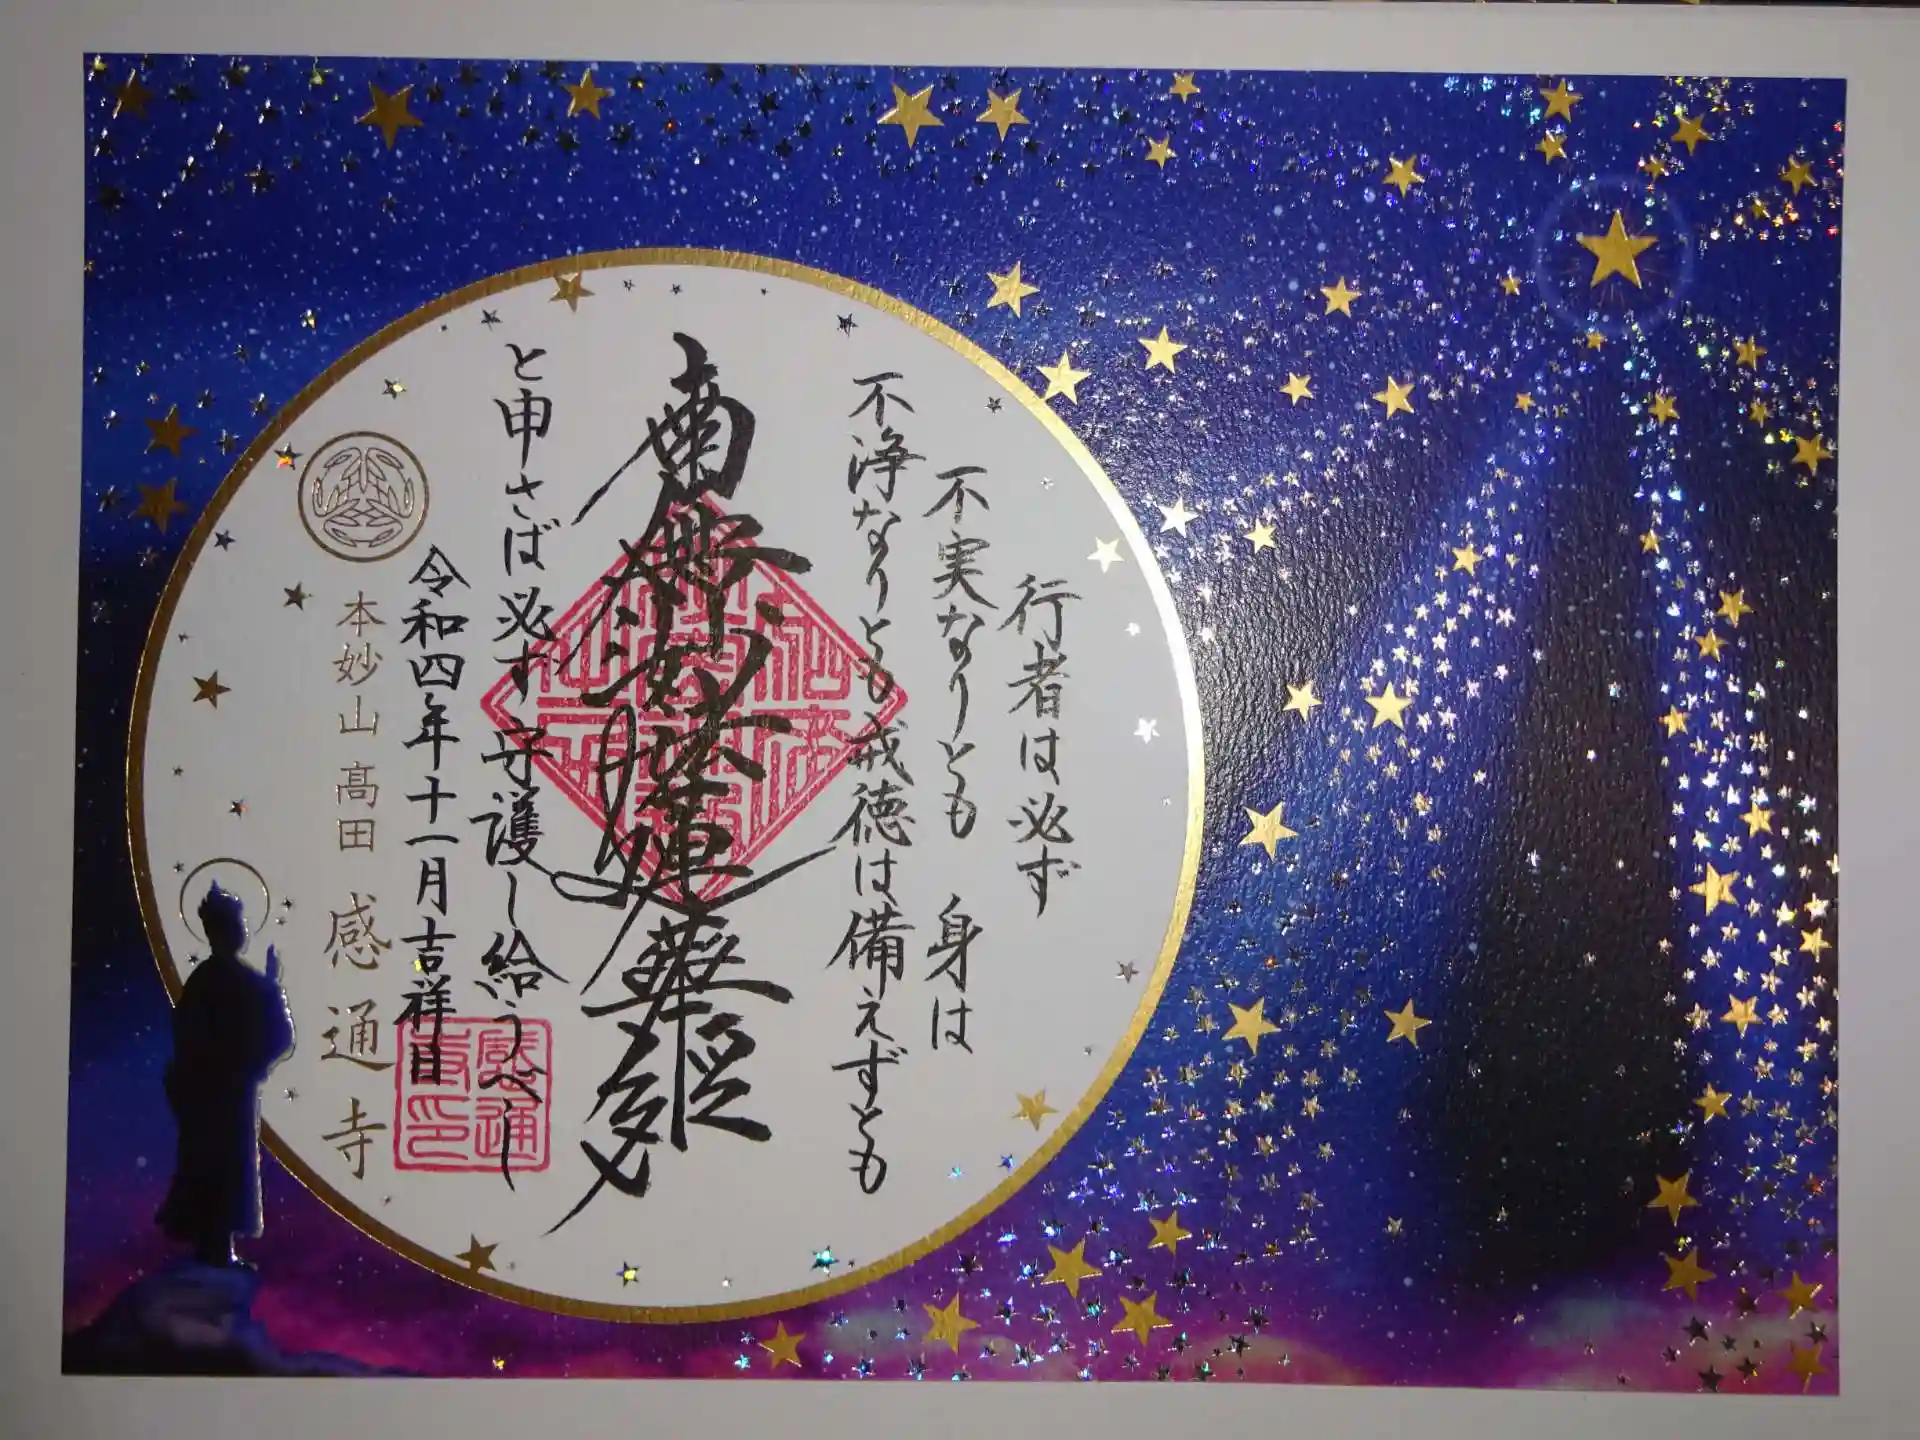 行者は必ず
不実なりとも 身は
不浄なりとも戒徳は備えずとも
南無妙法蓮華経
と申さば必ず守護し給うべし
令和四年十一月吉祥日
本妙山高田 感通寺
感通
寺印